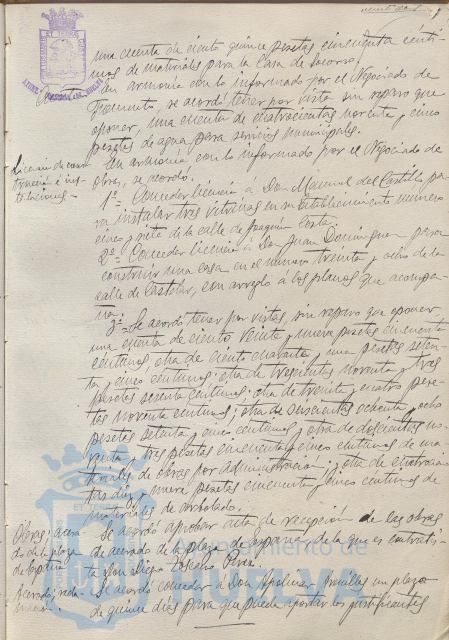 una cuenta de ciento quince pesetas cincuenta cénti-
mos de materiales para la Casa de Socorro.
En armonía con lo informado por el Negociado de
Fomento, se acordó tener por vista sin reparo que
oponer, una cuenta de cuatrocientas noventa y cinco
pesetas de agua para servicios municipales.
Licencia de cons-
trucción é ins-
talaciones.-
En armonía con lo informado por el Negociado de
obras, se acordó.
1º= Conceder licencia á Don Manuel del Castillo pa-
ra instalar tres vitrinas en su establecimiento número
cinco y siete de la calle de Joaquín Costa.
2º= Conceder licencia á Don Juan Domínguez para
construir una casa en el número treinta y ocho de la
calle de Castelar, con arreglo á los planos que acompa-
ña.
3º= Se acordó tener por vistas, sin reparo que oponer,
una cuenta de ciento veinte y nueve pesetas cincuenta
céntimos, otra de ciento cuarenta y una pesetas seten-
ta y cinco céntimos; otra de trescientas noventa y tres
pesetas sesenta céntimos; otra de treinta y cuatro pese-
tas noventa céntimos; otra de ochenta y ocho
pesetas setenta y cinco céntimos y otra de doscientas no-
venta y tres pesetas cincuenta y cinco céntimos de ma-
teriales de obras por administración; y otra de cuatrocien-
tas diez y nueve pesetas cincuenta y cinco céntimos de
materiales de arbolado.
Obras; acera-
do de la plaza
de España
Se acordó aprobar acta de recepción de las obras
de acerado de la plaza de España de la que es contratis-
ta Don Diego Toscano Pérez.
Acerado; rede-
Se acordó conceder á Don Apolinar un plazo
de quince días para que pueda aportar los justificantes
Ayuntamiento de
HUELVA